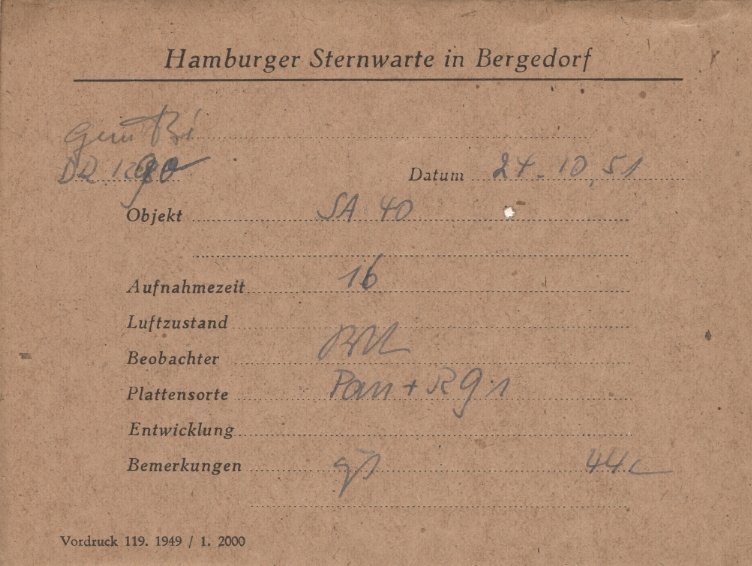 Hamburger Sternwarte in Bergedorf
Datum 24.10.51
Objekt SA 40
Aufnahmezeit 16
Luftzustand
Beobachter
Plattensorte Pan + R g 1
Entwicklung
Bemerkungen 44
Vordruck 119. 1949 / 1. 2000